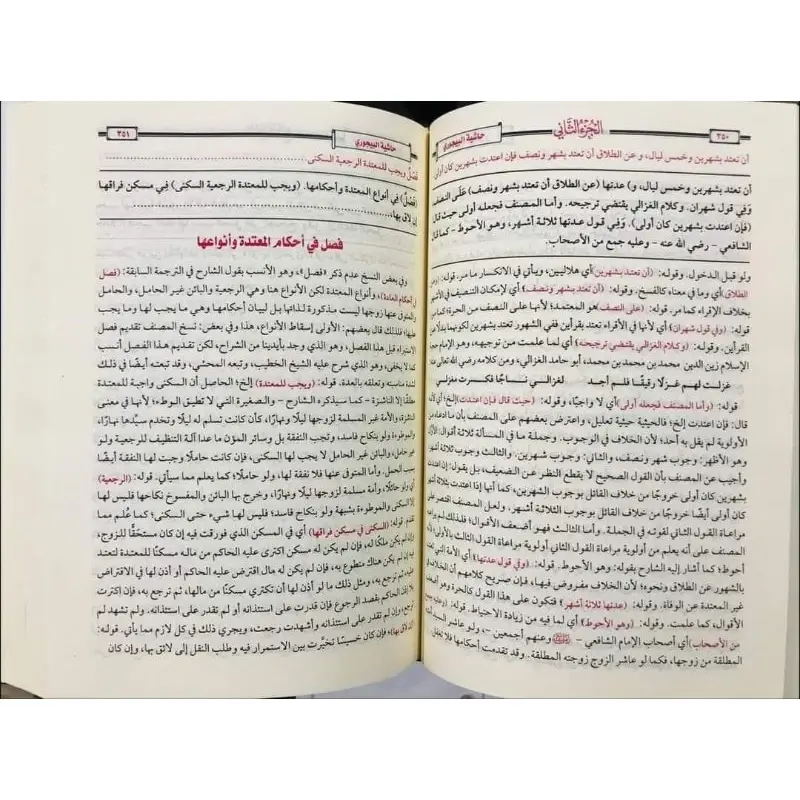 ٣٥٠
الجزء الثاني
حاشية البيجوري
أن تعتد بشهرين وخمس ليال، و عن الطلاق أن تعتد بشهر ونصف فإن اعتدت بشهرين كان أولى
أن تعتد بشهرين وخمس ليال، و) عدتها (عن الطلاق أن تعتد بشهر ونصف) على النصف
وفي قول شهران. وكلام الغزالي يقتضي ترجيحه. وأما المصنف فجعله أولى حيث قال
(فإن اعتدت بشهرين كان أولى). وفي قول عدتها ثلاثة أشهر، وهو الأحوط – كما قال
الشافعي – رضي الله عنه – وعليه جمع من الأصحاب.
ولو قبل الدخول. وقوله: (أن تعتد بشهرين) أي هلاليين، ويأتي في الانكسار ما مر. قوله: (وعن
الطلاق) أي وما في معناه كالفسخ. وقوله: (أن تعتد بشهر ونصف) أي لإمكان التنصيف في الأشهر
بخلاف الإقراء كما مر. قوله: (على النصف) هو المعتمد؛ لأنها على النصف من الحرة؛ كما
قوله: (وفي قول شهران) أي لأنها في الأقراء تعتد بقرأين ففي الشهور تعتد بشهرين لكونهما بدلاً عن
القرأين. وقوله: (وكلام الغزالي يقتضي ترجيحه) أي لما علمت من توجيهه، وهو الإمام حجة
الإسلام زين الدين محمد بن محمد بن محمد، أبو حامد الغزالي، ومن كلامه رضي الله تعالى
غزلت لهم غزلاً رقيقًا فلم أجد لغزالي نساجًا فكسرت مغزلي
قوله: (وأما المصنف فجعله أولى) أي لا واجبًا، وقوله: (حيث قال فإن اعتدت) إلخ؛ أي لأنه
قال: فإن اعتدت إلخ؛ فالحيثية حيثية تعليل، واعترض بعضهم على المصنف بأن ما ادعاه من
الأولوية لم يقل به أحد؛ لأن الخلاف في الوجوب. وجملة ما في المسألة ثلاثة أقوال: الأول
وهو الأظهر: وجوب شهر ونصف، والثاني: وجوب شهرين. والثالث وجوب ثلاثة
وأجيب عن المصنف بأن القول الصحيح لا يقطع النظر عن الضعيف، بل يقول: إن اعتدت
بشهرين كان أولى خروجًا من خلاف القائل بوجوب الشهرين، كما أنها إذا اعتدت بثلاثة
كان أولى أيضًا خروجًا من خلاف القائل بوجوب الثلاثة أشهر. ولعل المصنف اقتصر على
مراعاة القول الثاني لقوته في الجملة. وأما الثالث فهو أضعف الأقوال؛ فلذلك لم يراعه
المصنف على أنه يعلم من أولوية مراعاة القول الثاني أولوية مراعاة القول الثالث بالأولى
أحوط؛ كما أشار إليه الشارح بقوله: وهو الأحوط. قوله: (وفي قول عدتها) أي الأمة التي تعتد
بالشهور عن الطلاق ونحوه؛ لأن الخلاف مفروض فيها، فإن صريح كلامهم أن الخلاف في
غير المعتدة عن الوفاة. وقوله: (عدتها ثلاثة أشهر) فتكون على هذا القول كالحرة وهو أضعف
الأقوال، كما علمت. وقوله: (وهو الأحوط) أي لما فيه من زيادة الاحتياط. قوله: (وعليه جمع
من الأصحاب) أي أصحاب الإمام الشافعي – وعنهم أجمعين –، ولو عاشر
المطلقة من زوجها، فكما لو عاشر الزوج زوجته المطلقة. وقد تقدمت أحكامها فلا تغفل.
حاشية البيجوري
٣٥١
فصل ويجب للمعتدة الرجعية السكنى
(فصلٌ) في أنواع المعتدة وأحكامها. (ويجب للمعتدة الرجعية السكنى) في مسكن فراقها
إن لاق بها
فصل في أحكام المعتدة وأنواعها
وفي بعض النسخ عدم ذكر «فصل»، وهو الأنسب بقول الشارح في الترجمة السابقة: (فصل
في أحكام العدة) وأنواع المعتدة لكن الأنواع هنا وهي الرجعية والبائن غير الحامل، والحامل
والمتوفى عنها زوجها ليست مذكورة لذاتها بل لبيان أحكامها وهي ما يجب لها وما يجب
عليها؛ فلذلك قال بعضهم: الأولى إسقاط الأنواع، هذا وفي بعض: نسخ المصنف تقديم فصل
الاستبراء قبل هذا الفصل، وهو الذي وجد بأيدينا من الشراح، لكن تقديم هذا الفصل أنسب
كما لا يخفى، وهو الذي شرح عليه الشيخ الخطيب، وتبعه المحشي، وقد تبعته أيضًا في ذلك
لشدة مناسبته وتعلقه بالعدة. قوله: (ويجب للمعتدة) إلخ؛ الحاصل أن السكنى واجبة للمعتدة
مطلقًا إلا الناشزة – كما سيذكره الشارح – والصغيرة التي لا تطيق الوطء؛ لأنها في معنى
الناشزة، والأمة غير المسلمة لزوجها ليلاً ونهارًا، كأن كانت تسلم له ليلاً وتخدم سيدها نهارًا،
والموطوءة ولو بنكاح فاسد، وتجب النفقة بل وسائر المؤن ما عدا آلة التنظيف للرجعية ولو
غير حامل، والبائن غير الحامل لا يجب لها السكنى، فإن كانت حاملًا وجبت لها النفقة أيضًا
بسبب الحمل. وأما المتوفى عنها فلا نفقة لها، ولو حاملًا؛ كما يعلم مما سيأتي. قوله: (الرجعية)
أي ولو حائلًا، وأمة مسلمة لزوجها ليلًا ونهارًا، وخرج بها البائن والمفسوخ نكاحها فليس لها
إلا السكنى والموطوءة بشبهة ولو بنكاح فاسد؛ فليس لها شيء حتى السكنى؛ كما علم مما
تقدم. قوله: (السكنى في مسكن فراقها) أي في المسكن الذي فورقت فيه إن كان مستحقًّا للزوج،
وإن لم يكن ملكًا له، فإن لم يكن له مسكن اكترى عليه الحاكم من ماله مسكنًا للمعتدة لتعتد
فيه إن لم يكن هناك متطوع به، فإن لم يكن له مال اقترض عليه الحاكم أو أذن لها في الاقتراض
ثم ترجع به، ومثل ذلك ما لو أذن لها أن تكتري مسكنًا من مالها، ثم ترجع به، فإن اكترت
بلا إذن الحاكم بقصد الرجوع فإن قدرت على استئذانه أو لم تقدر على استئذانه. ولم تشهد لم
ترجع وإن لم تقدر على استئذانه وأشهدت رجعت، ويجري ذلك في كل لازم مما يأتي. قوله:
(إن لاق بها) فإن كان خسيسًا تخيَّرت بين الاستمرار فيه وطلب النقل إلى لائق بها، وإن كان